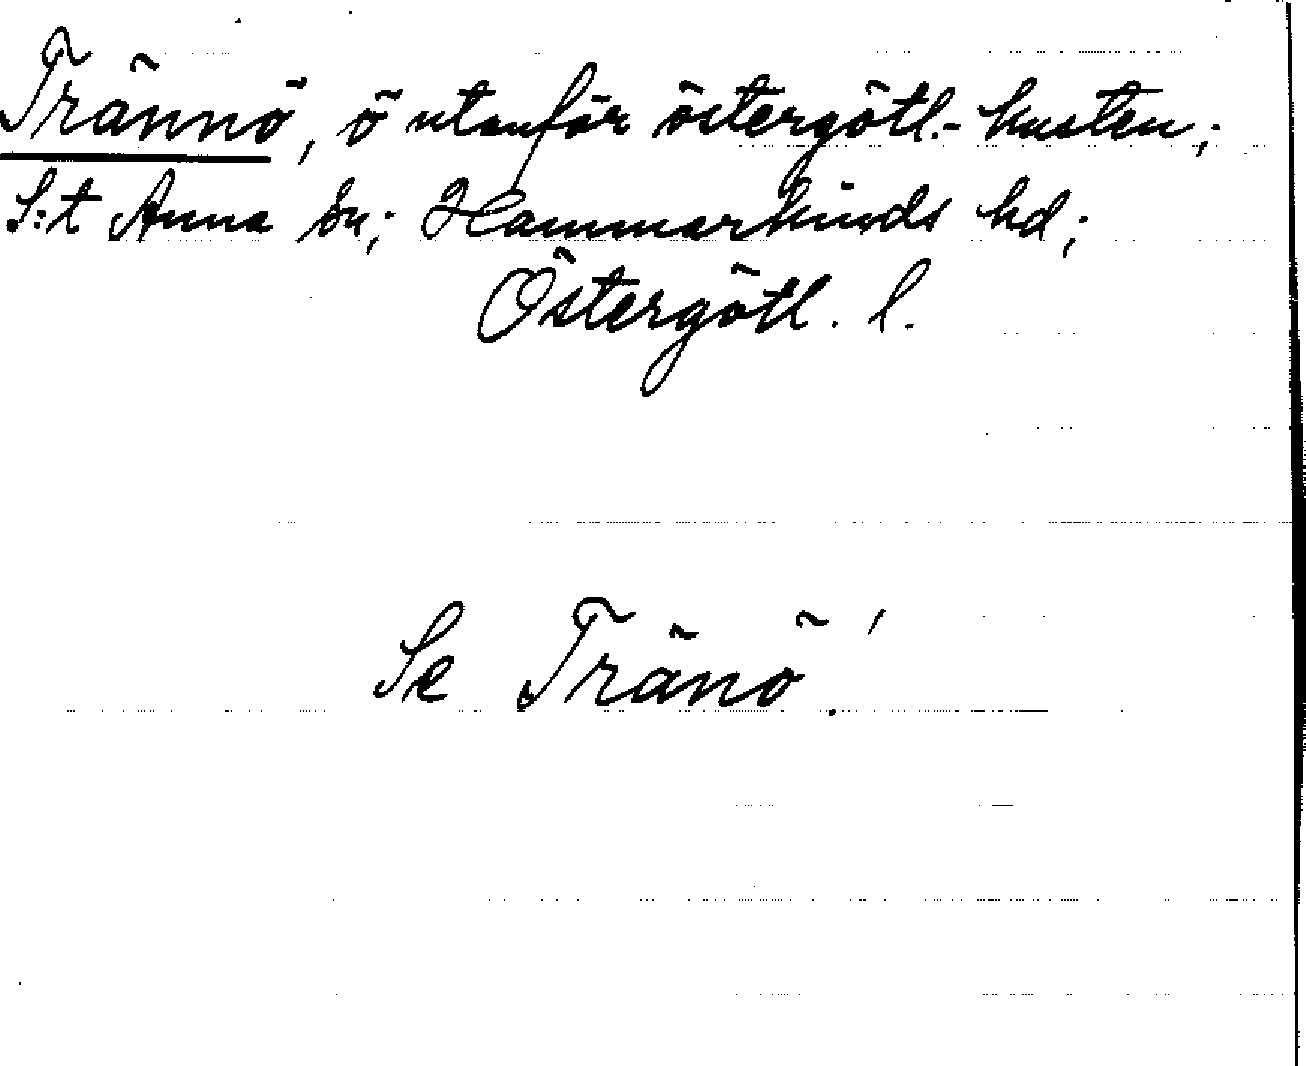 Trännö, ö utanför östergötl.-kusten;
S:t Anna sn; Hammarkinds hd;
Östergötl. l.
Se Tränö!